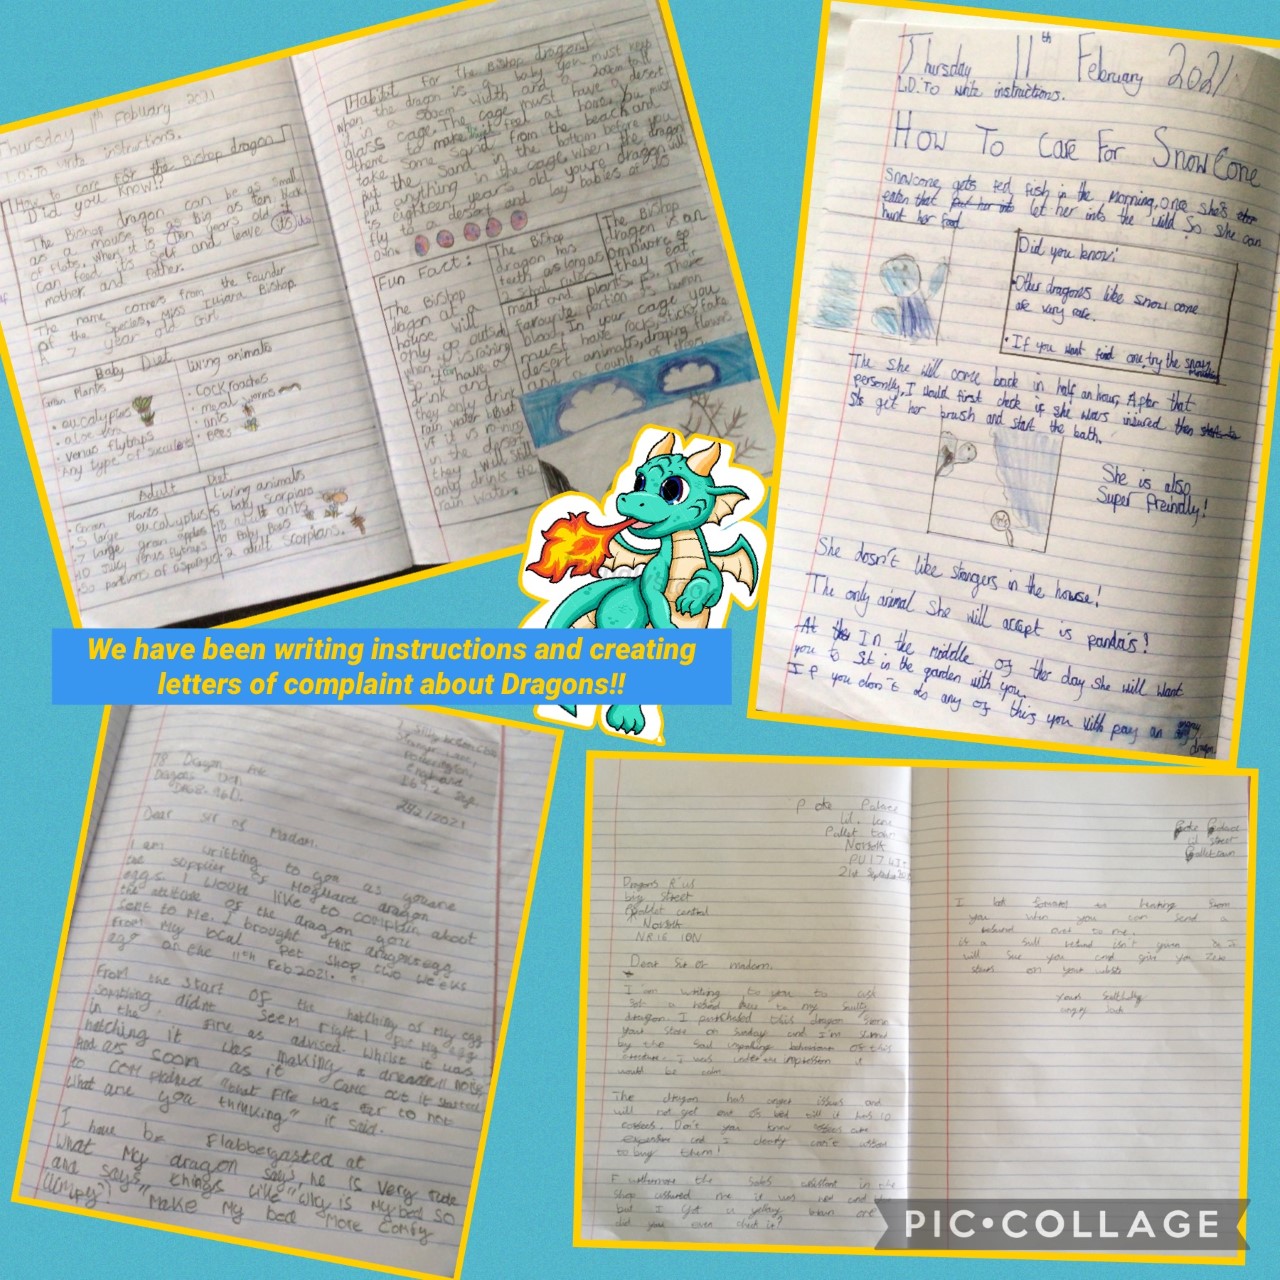 Thursday 11th February 2021
L.O. To write instructions.
How to care for the Bishop dragon
Did you know!?
The Bishop dragon can be as small
as a mouse to as big as ten block
of flats, when it is ten years old it
can feed it's self and leave it's
mother and father.
The name comes from the founder
of the species, Miss Iliana Bishop.
A 7 year old Girl
Baby Diet
Green Plants
Living animals
• eucalyptus
• aloe vera
• Venus flytraps
Any type of succulent
• Cockroaches
• meal worms
• ants
• Bees
Adult Diet
Green Plants
Living animals
Habitat for the Bishop dragon
when the dragon is a baby you must keep
it in a 50cm width and a 200cm tall
glass cage. The cage must have a desert
theme to make it feel at home. You must
take some sand from the beach and
put the sand in the bottom before you
put anything in the cage. when the dragon
is eighteen years old your dragon will
fly to a desert and lay babies of its
own.
Fun Fact:
The Bishop
dragon at
house will
only go outside
when it is raining
so it can have a
drink and
they only drink
rain water. But
if it is mainly
in the desert
they will still
only drink the
rain water.
The Bishop
dragon has
teeth as long as
30cm rulers
The Bishop
dragon is an
omnivore so
they eat
meat and plants. There
favourite portion is human
blood. In your cage you
must have rocks, sticks, fake
desert animals, draping flowers
and a couple of them
Thursday 11th February 2021
L.O. To write instructions.
How To Care For Snow Cone
Snowcone gets fed fish in the morning, once she's
eaten that let her into the wild so she can
hunt her food
Did you know:
• Other dragons like snow cone
are very rare.
• If you want find one, try the snowy
mountains
The she will come back in half an hour. After that
personly, I would first check if she was insured then
get her brush and start the bath.
She is also
Super Freindly!
She dosn't like stangers in the house!
The only animal she will accept is panda's!
In the middle of the day she will want
you to sit in the garden with you.
If you don't do any of this you with pay an angry
dragon
We have been writing instructions and creating
letters of complaint about Dragons!!
78 Dragon
Dragons Den
Dear sir of Madam.
I am writting to you as youare
the supplier of Moguard dragon
eggs. I would like to complain about
the attitude of the dragon you
sent to me. I brought this dragon egg
from my local Pet shop two weeks
ago on the 11th Feb 2021.
From the start of the hatching of my egg
somthing didnt seem right. I put my egg
in the fire as advised. Whilst it was
hatching it was making a dreadful noise
and as soon as it came out it started
to complained "that fire was far to hot
what are you thinking" it said.
I have be Flabbergasted at
what my dragon says, he is very rude
and says things like "why is my bed so
lumpey"! "Make my bed more comfy
Poke Palace
Pallet town
Norfolk
21st September
Dragons R' us
big street
Pallet central
Norfolk
NR16 10N
Dear Sir or madam.
I am writing to you to ask
for a refund due to my faulty
dragon. I purchased this dragon from
your store on Sunday and I'm
by the behaviour of this
creature. I was under the impression it
would be calm.
The dragon has anger issues and
will not get out of bed till it has 10
coffees. Don't you know coffees are
expensive and I clearly can't afford
to buy them!
Furthermore the sales assistant in the
shop assured me it was red and
but I got a yellow brown one
did you even check it?
Poke Palace
Pallet town
I look forward to hearing from
you when you can send a
refund over to me.
if a full refund isn't given I
will sue you and give you zero
stars on your website
Yours faithfully
angry Jack
PIC•COLLAGE